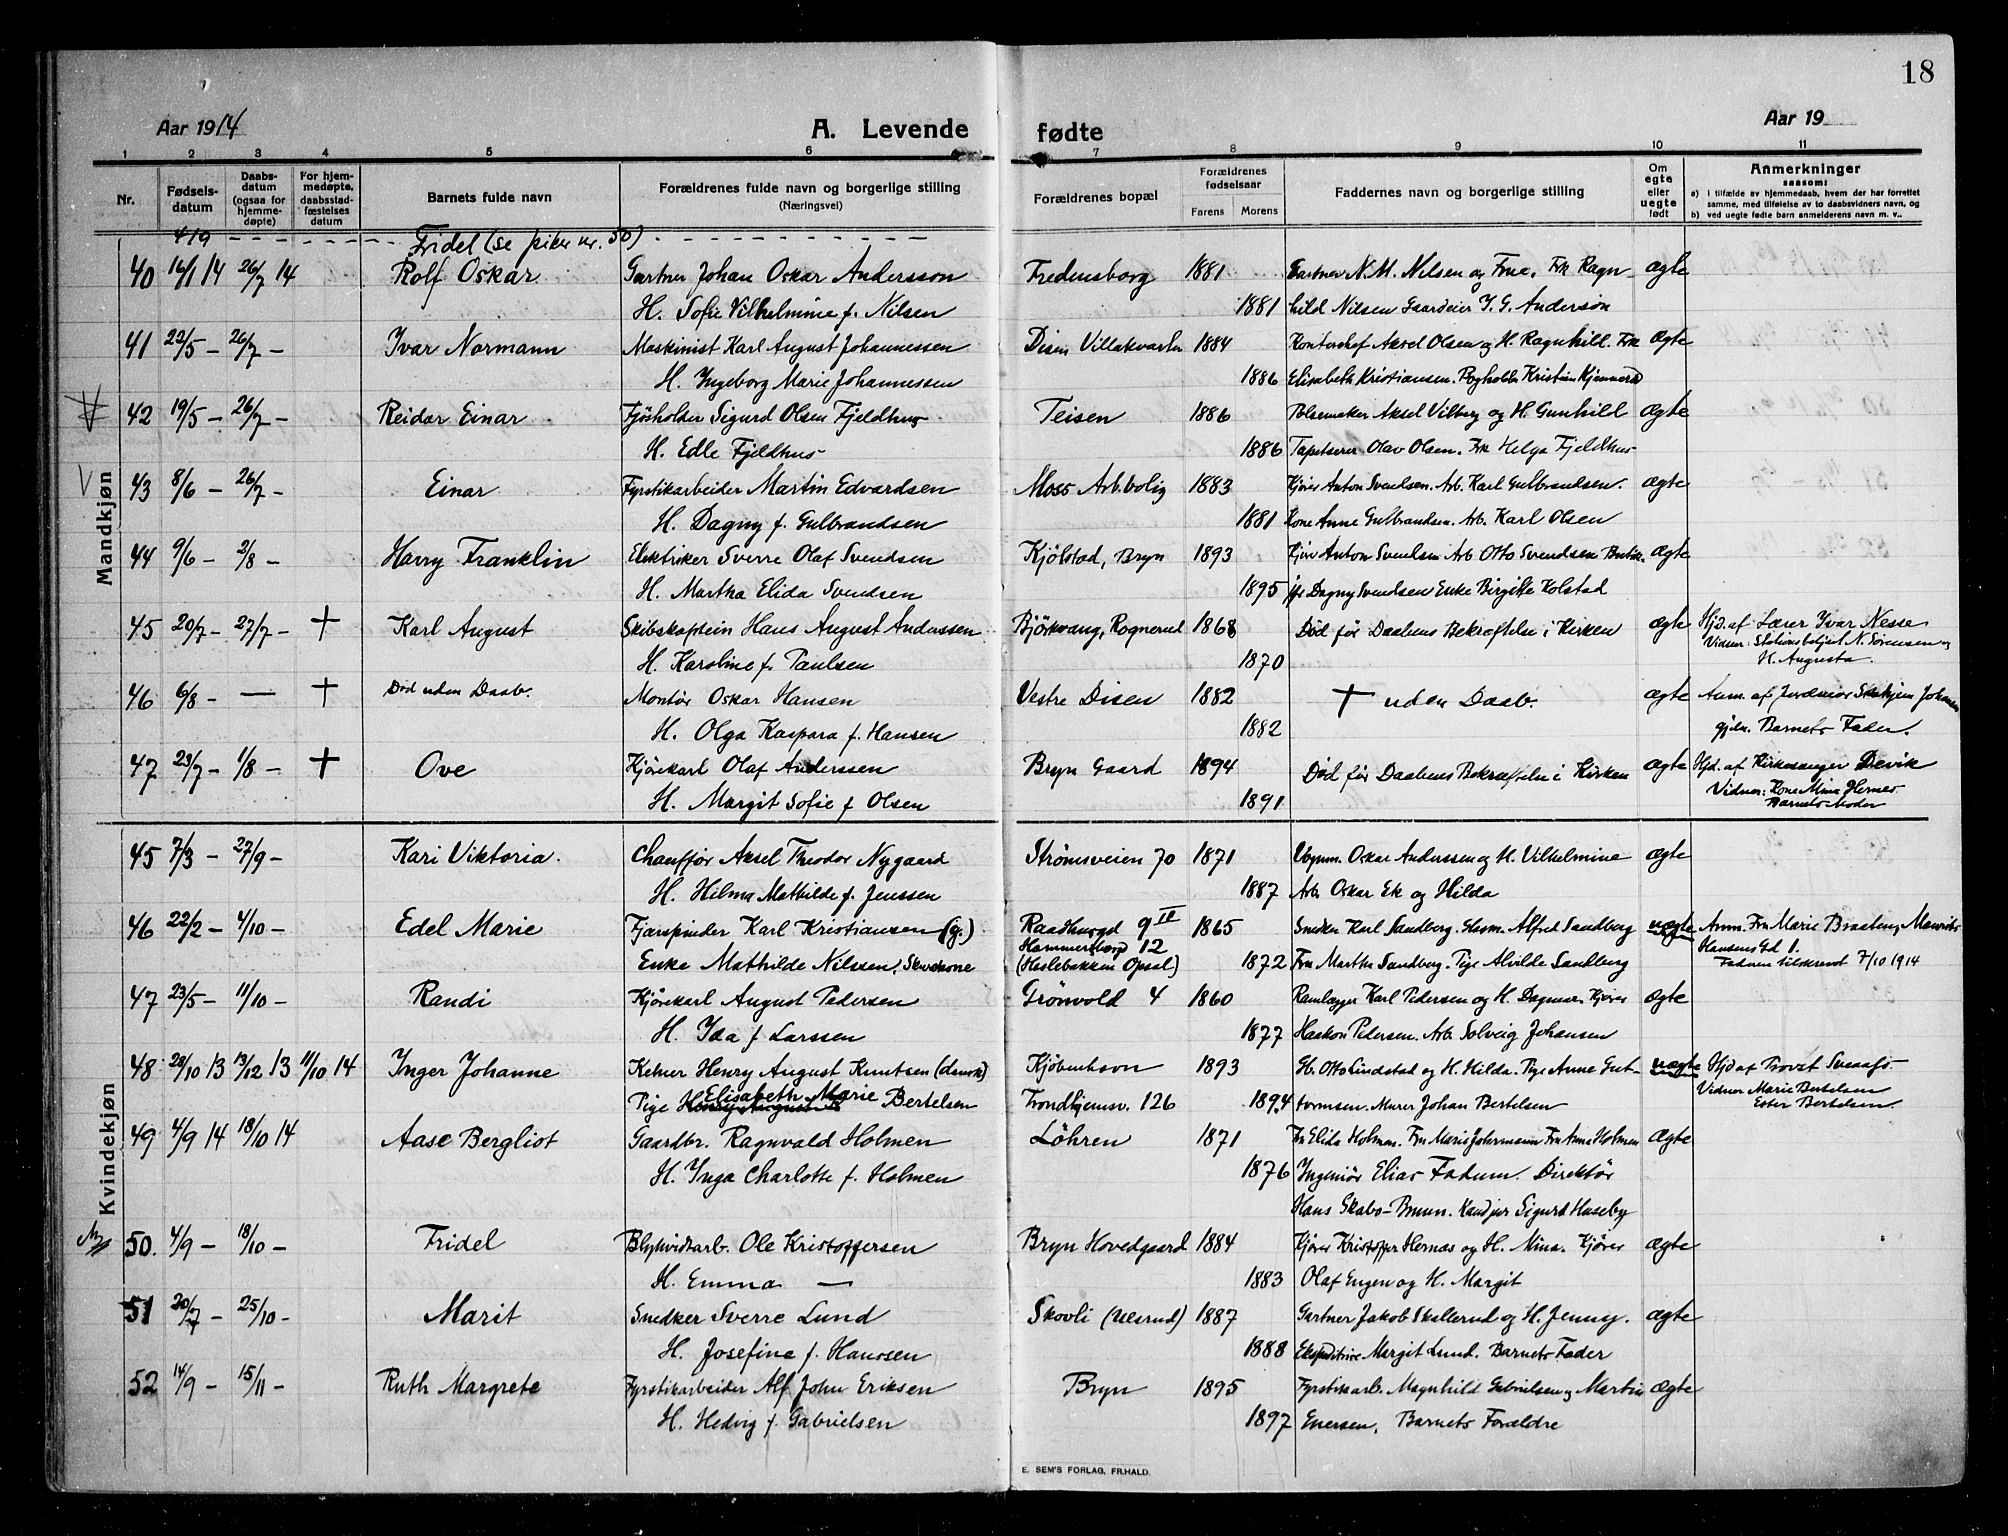 18
Aar 1914 A. Levende fødte Aar 19
1 2 3 4 5 6 7 8 9 10 11
Nr. Fødselsdatum Daabsdatum (ogsaa for hjemmedøpte) For hjemmedøpte, daabsstadfæstelses datum Barnets fulde navn Forældrenes fulde navn og borgerlige stilling (Næringsvei) Forældrenes bopæl Forældrenes fødselsaar Farens Morens Faddernes navn og borgerlige stilling Om egte eller uegte født Anmerkninger saasom: a) i tilfælde av hjemmedaab, hvem der har forrettet samme, med tilføielse av to daabsvidners navn, og b) ved uegte fødte barn anmelderens navn m. v..
Mandkjøn
4/9 - - - - Fridel (se pike nr. 50) - - - -
40 16/1 14 26/7 14 Rolf Oskar Gartner Johan Oskar Andersson Fredensborg 1881 Gartner N. M. Nilsen og Frue, Frk Ragn- ægte
H. Sofie Vilhelmine f. Nilsen 1881 hild Nilsen Gaardeier J. G. Anderson
41 22/5 - 26/7 - Ivar Normann Maskinist Karl August Johannessen Disen Villakvarter 1884 Kontorchef Aksel Olsen og H. Ragnhild. Frk ægte
H. Ingeborg Marie Johannessen 1886 Elisabeth Kristiansen. Bogholder Kristian
42 19/5 - 26/7 - Reidar Einar Sigurd Olsen Fjeldhus Teisen 1886 Pølsemaker Aksel Vilberg og H. Gunhild ægte
H. Edle Fjeldhus 1886 Tapetserer Olav Olsen. Frk Helga Fjeldhus
43 8/6 - 26/7 - Einar Fyrstikarbeider Martin Edvardsen Moss Arb.bolig 1883 Kjører Anton Svendsen. Arb. Karl Gulbrandsen. ægte
H. Dagny f. Gulbrandsen 1881 Kone Anne Gulbrandsen. Arb. Karl Olsen
44 9/6 - 2/8 - Harry Franklin Elektriker Sverre Olaf Svendsen Kjølstad, Bryn 1893 Kjører Anton Svendsen Arb Otto Svendsen Butik- ægte
H. Martha Elida Svendsen 1895 jfr Dagny Svendsen Enke Birgitte Kolstad
45 20/7 - 27/7 - + Karl August Skibskaptein Hans August Anderssen Bjørkvang, Rognerud 1868 Død før Daabens Bekræftelse i Kirken ægte Hjd. af Lærer Ivar Nesse
Vidner: Stationsbetjent N. Sørensen og
H. Karoline f. Paulsen 1870 H. Augusta.
46 6/8 - — + Død uden Daab. Montør Oskar Hansen Vestre Disen 1882 + uden Daab. ægte Anm. af Jordmor Johansen
H. Olga Kaspara f. Hansen 1882 gjdn. Barnets Fader.
47 23/7 - 1/8 - + Ove Kjørekarl Olaf Anderssen Bryn Gaard 1894 Død før Daabens Bekræftelse i Kirken ægte Hjd. af Kirkesanger Devik
Vidner: Kone Mina Hernes
H. Margit Sofie f Olsen 1891 Barnets Moder
Kvindekjøn
45 7/3 - 27/9 - Kari Viktoria. Chauffør Aksel Theodor Nygaard Strømsveien 70 1871 Vognm. Oskar Anderssen og H. Vilhelmine ægte
H. Hilma Mathilde f. Jenssen 1887 Arb. Oskar Ek og Hilda
46 22/2 - 4/10 - Edel Marie Karl Kristiansen (g.) Raadhusgd 9 II 1865 Snedker Karl Sandberg. Alfred Sandberg uægte Anm. Fru Marie Braaten, Maurits
Hammersborg 12 Hansens Gd 1.
Enke Mathilde Nilssen, (Haslebakken Opsal) 1872 Fru Martha Sandberg. Pige Alvilde Sandberg Faderen tilskrevet 7/10 1914
47 23/5 - 11/10 - Randi Kjørekarl August Pedersen Grønvold 4 1860 Ramlægger Karl Pedersen og H. Dagmar. Kjører ægte
H. Ida f Larssen 1877 Haakon Pedersen. Arb. Solveig Johansen
48 28/10 13 13/12 13 11/10 14 Inger Johanne Kelner Henry August Knutsen (dansk) Kjøbenhavn 1893 Gb. Otto Lindstad og H. Hilda. Pige Anne Gut- uægte Hjd af Provst
Elisabeth Marie Vidner Marie Bertelsen
Pige Henry August Bertelsen Trondhjemsv. 126 1894 tormsen. Murer Johan Bertelsen Ester Bertelsen.
49 4/9 14 18/10 14 Aase Bergliot Gaardbr. Ragnvald Holmen Løhren 1871 Fru Elida Holmen. Fru Marie Johrmann Fru Anna Holmen ægte
H. Inga Charlotte f. Holmen 1876 Ingeniør Elias Fadum. Direktør
Hans Skabo-Bruun. Kandjur Sigurd Huseby
50. 4/9 - 18/10 - Fridel Blyhvidtarb. Ole Kristoffersen Bryn Hovedgaard 1884 Kjører Kristoffer Hernæs og H. Mina. Kjører ægte
H. Emma — 1883 Olaf Engen og H. Margit
51 20/7 - 25/10 - Marit Snedker Sverre Lund Skovli (Ulsrud) 1887 Gartner Jakob Skallerud og H. Jenny. ægte
H. Josefine f. Hanssen 1888 Ekspeditrice Margit Lund. Barnets Fader
52 14/9 - 15/11 - Ruth Margrete Fyrstikarbeider Alf John Eriksen Bryn 1895 Fyrstikarb. Magnhild Gabrielsen og Martin ægte
H. Hedvig f. Gabrielsen 1897 Enersen, Barnets Forældre
E. SEM'S FORLAG, FR.HALD.